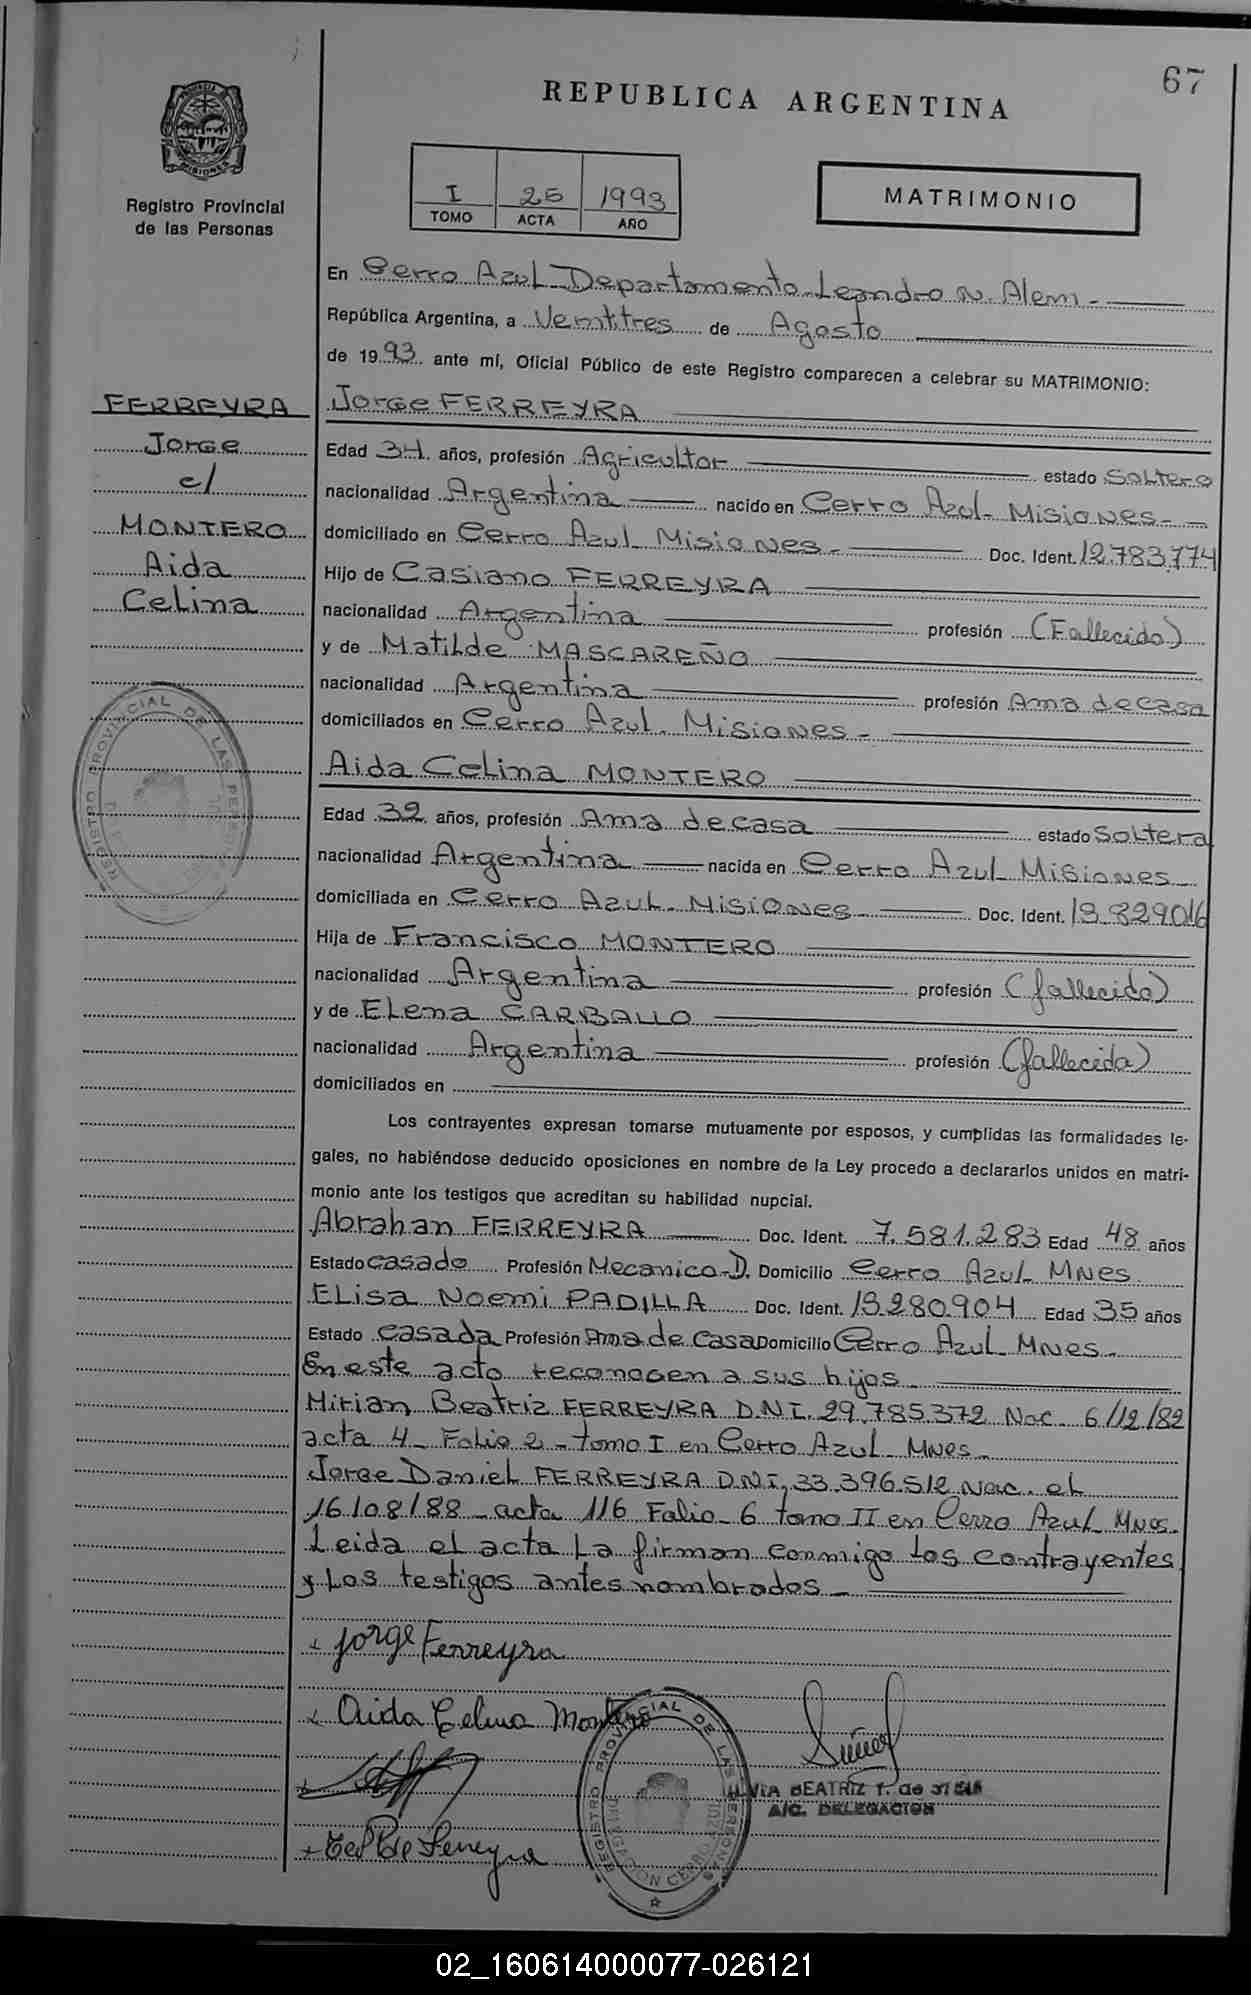 67
REPUBLICA ARGENTINA
PROVINCIA DE MISIONES
Registro Provincial
de las Personas
I 25 1993
TOMO ACTA AÑO
MATRIMONIO
En Cerro Azul Departamento Leandro N. Alem -
República Argentina, a Ventitres de Agosto
de 19 93 ante mí, Oficial Público de este Registro comparecen a celebrar su MATRIMONIO:
FERREYRA
Jorge
c/
MONTERO
Aida
Celina
Jorge FERREYRA
Edad 34 años, profesión Agricultor estado Soltero
nacionalidad Argentina nacido en Cerro Azul - Misiones -
domiciliado en Cerro Azul Misiones - Doc. Ident. 12.783.774
Hijo de Casiano FERREYRA
nacionalidad Argentina profesión (Fallecido)
y de Matilde MASCAREÑO
nacionalidad Argentina profesión Ama de casa
domiciliados en Cerro Azul - Misiones -
Aida Celina MONTERO
Edad 32 años, profesión Ama de casa estado Soltera
nacionalidad Argentina nacida en Cerro Azul Misiones -
domiciliada en Cerro Azul - Misiones - Doc. Ident. 13.829.016
Hija de Francisco MONTERO
nacionalidad Argentina profesión (fallecido)
y de Elena CARBALLO
nacionalidad Argentina profesión (fallecida)
domiciliados en
Los contrayentes expresan tomarse mutuamente por esposos, y cumplidas las formalidades le-
gales, no habiéndose deducido oposiciones en nombre de la Ley procedo a declararlos unidos en matri-
monio ante los testigos que acreditan su habilidad nupcial.
Abrahan FERREYRA Doc. Ident. 7.581.283 Edad 48 años
Estado casado Profesión Mecanico-D. Domicilio Cerro Azul Mnes.
Elisa Noemi PADILLA Doc. Ident. 13.280.904 Edad 35 años
Estado casada Profesión Ama de Casa Domicilio Cerro Azul Mnes.
En este acto reconocen a sus hijos
Mirian Beatriz FERREYRA D.N.I. 29.785.372 Nac. 6/12/82
acta 4 - Folio 2 - tomo I en Cerro Azul Mnes -
Jorge Daniel FERREYRA D.N.I. 33.396.512 Nac. el
16/08/88 - acta 116 Folio - 6 tomo II en Cerro Azul Mnes.
Leida el acta la firman conmigo los contrayentes
y los testigos antes nombrados -
Jorge Ferreyra
Aida Celina Montero
REGISTRO PROVINCIAL DE LAS PERSONAS
DELEGACION CERRO AZUL
BEATRIZ
A/C. DELEGACION
de Ferreyra
REGISTRO PROVINCIAL DE LAS PERSONAS
02_160614000077-026121